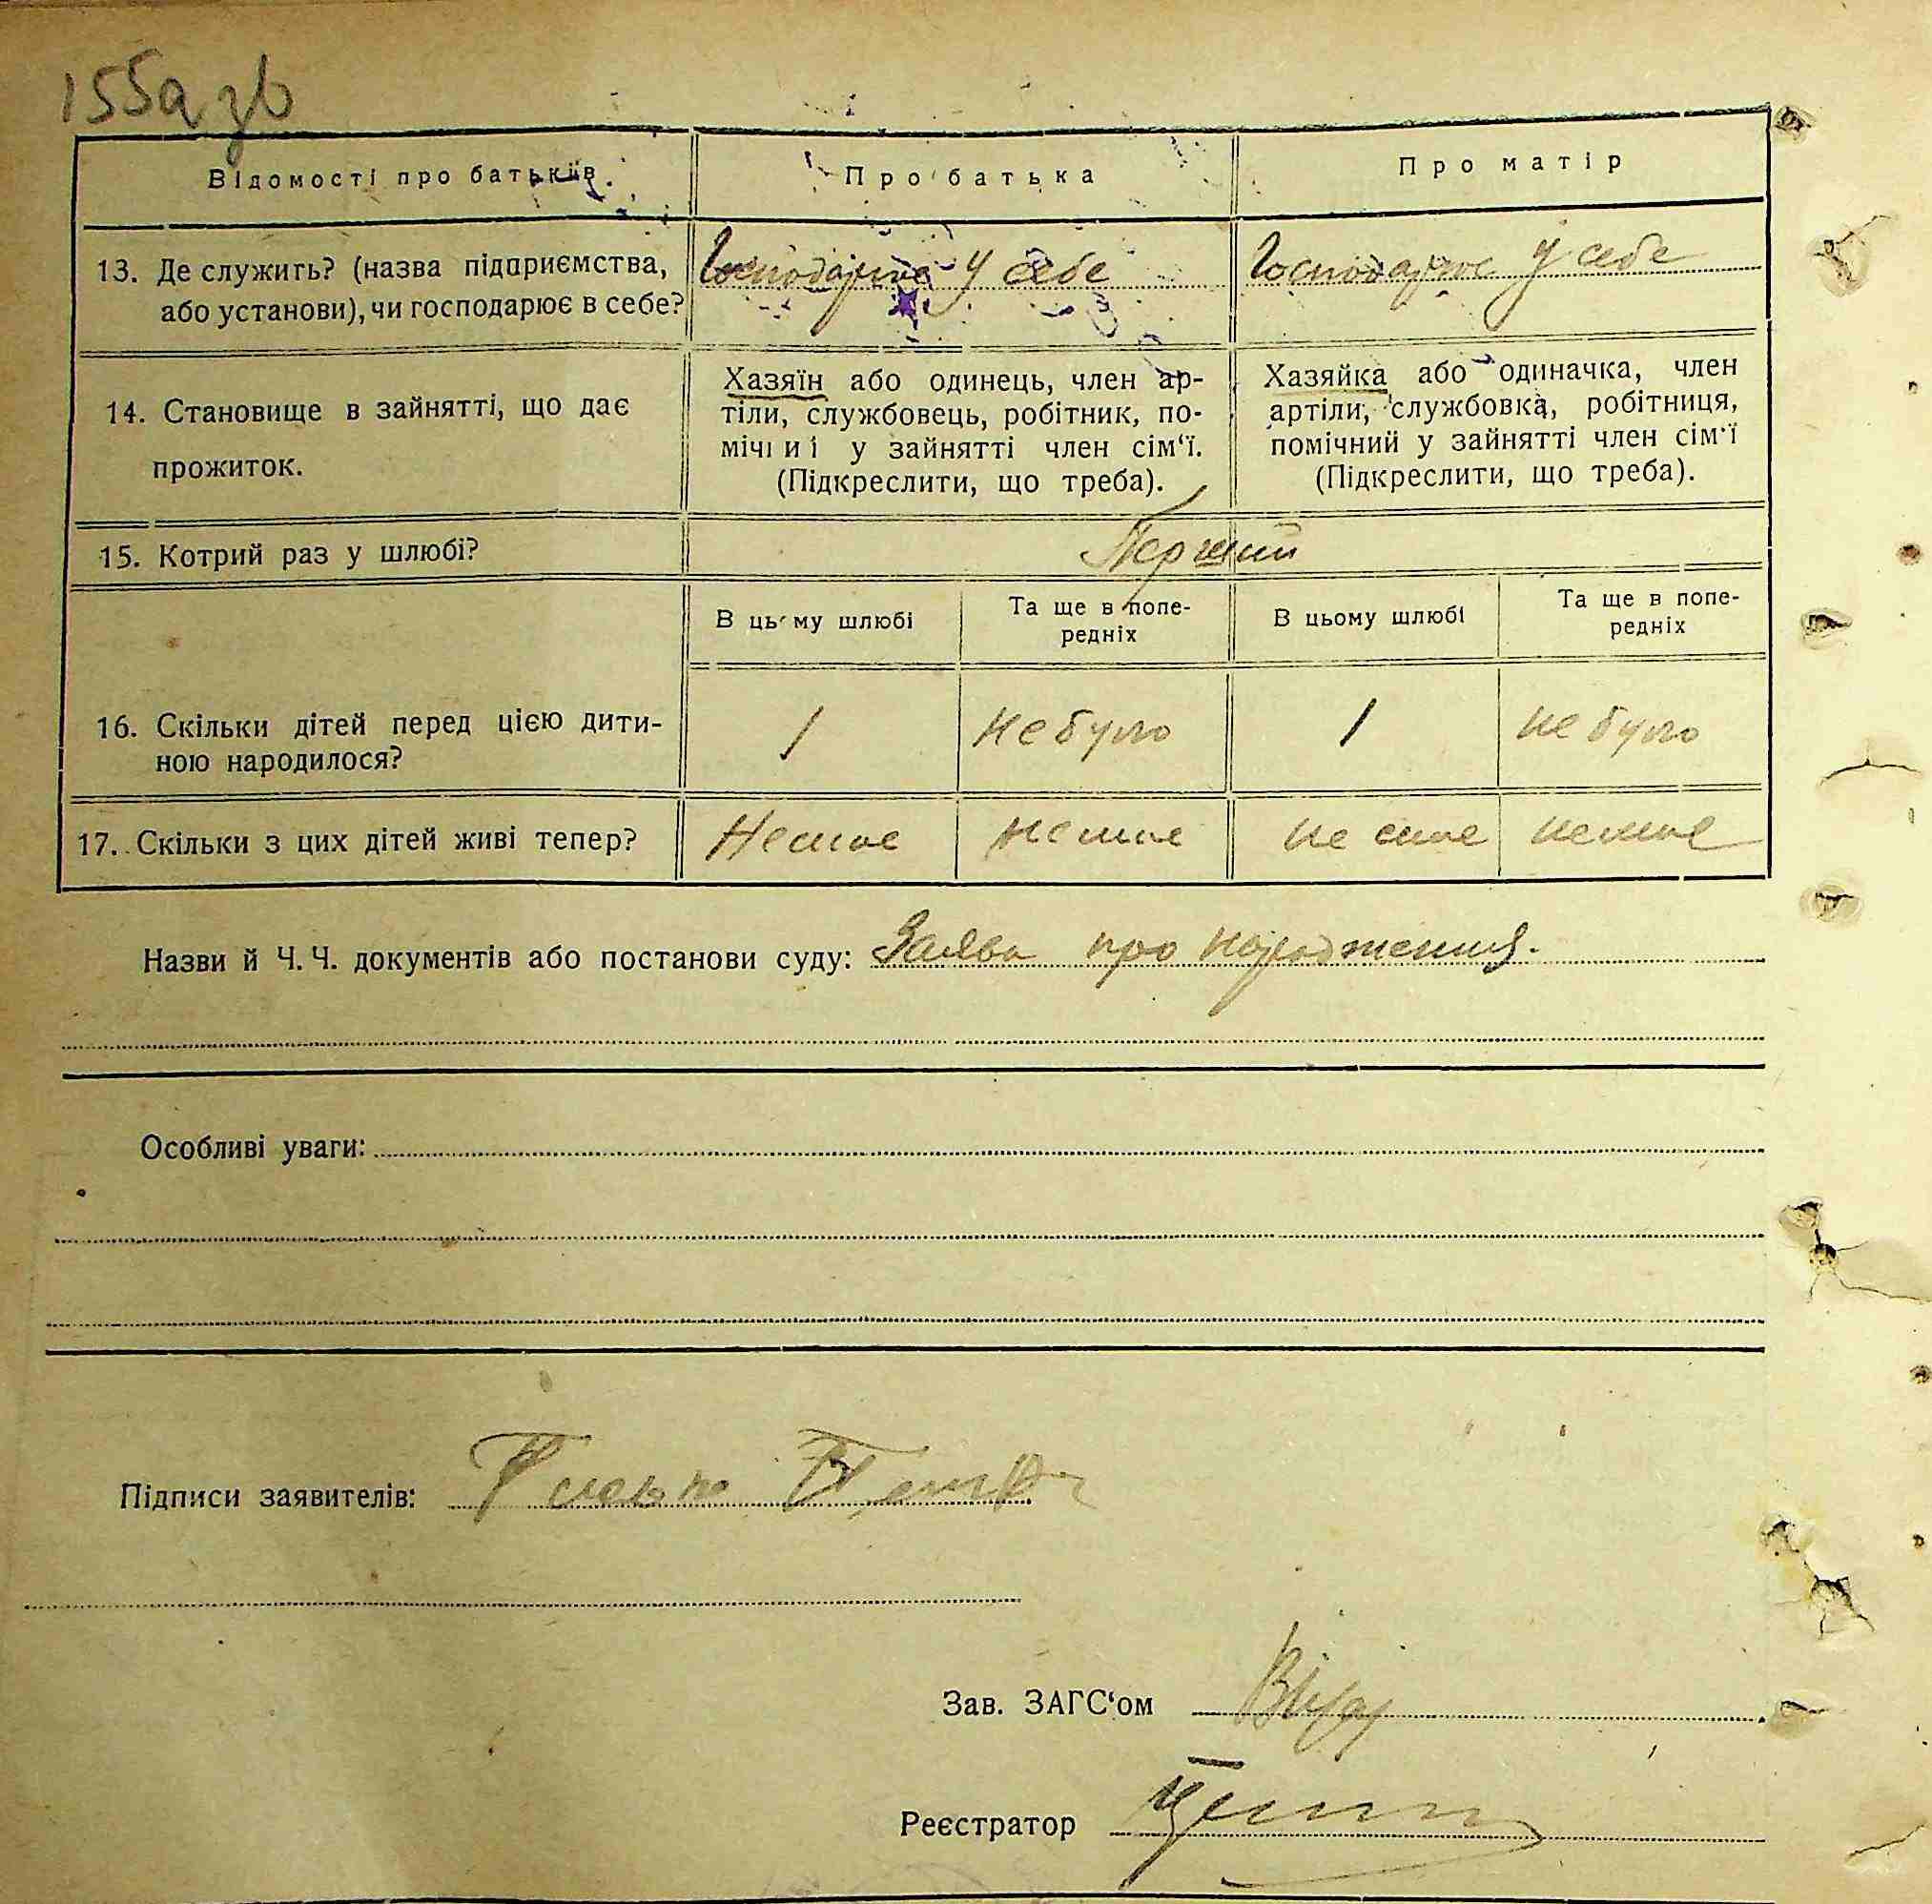 155а зв
Відомості про батьків.
Про батька
Про матір
13. Де служить? (назва підприємства,
або установи), чи господарює в себе?
Господарює у себе
Господарює у себе
14. Становище в зайнятті, що дає
прожиток.
Хазяїн або одинець, член ар-
тіли, службовець, робітник, по-
мічниі у зайнятті член сім‘ї.
(Підкреслити, що треба).
Хазяйка або одиначка, член
артіли, службовка, робітниця,
помічний у зайнятті член сім‘ї
(Підкреслити, що треба).
15. Котрий раз у шлюбі?
Перший
В цьому шлюбі
Та ще в попе-
редніх
В цьому шлюбі
Та ще в попе-
редніх
16. Скільки дітей перед цією дити-
ною народилося?
1
не було
1
не було
17. Скільки з цих дітей живі тепер?
Немає
немає
не має
немає
Назви й Ч. Ч. документів або постанови суду: Заява про народження.
Особливі уваги:
Підписи заявителів:
Зав. ЗАГС‘ом
Реєстратор